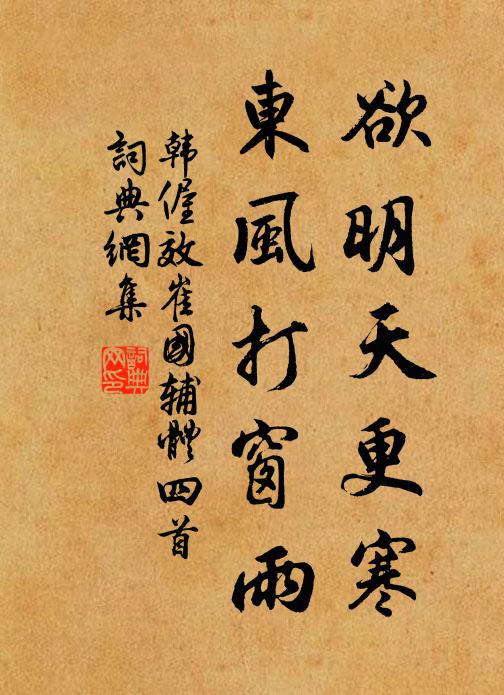 欲明天更寒
東風打窗雨
韩偓效崔國辅體四首
詞典網集
詞典
网印